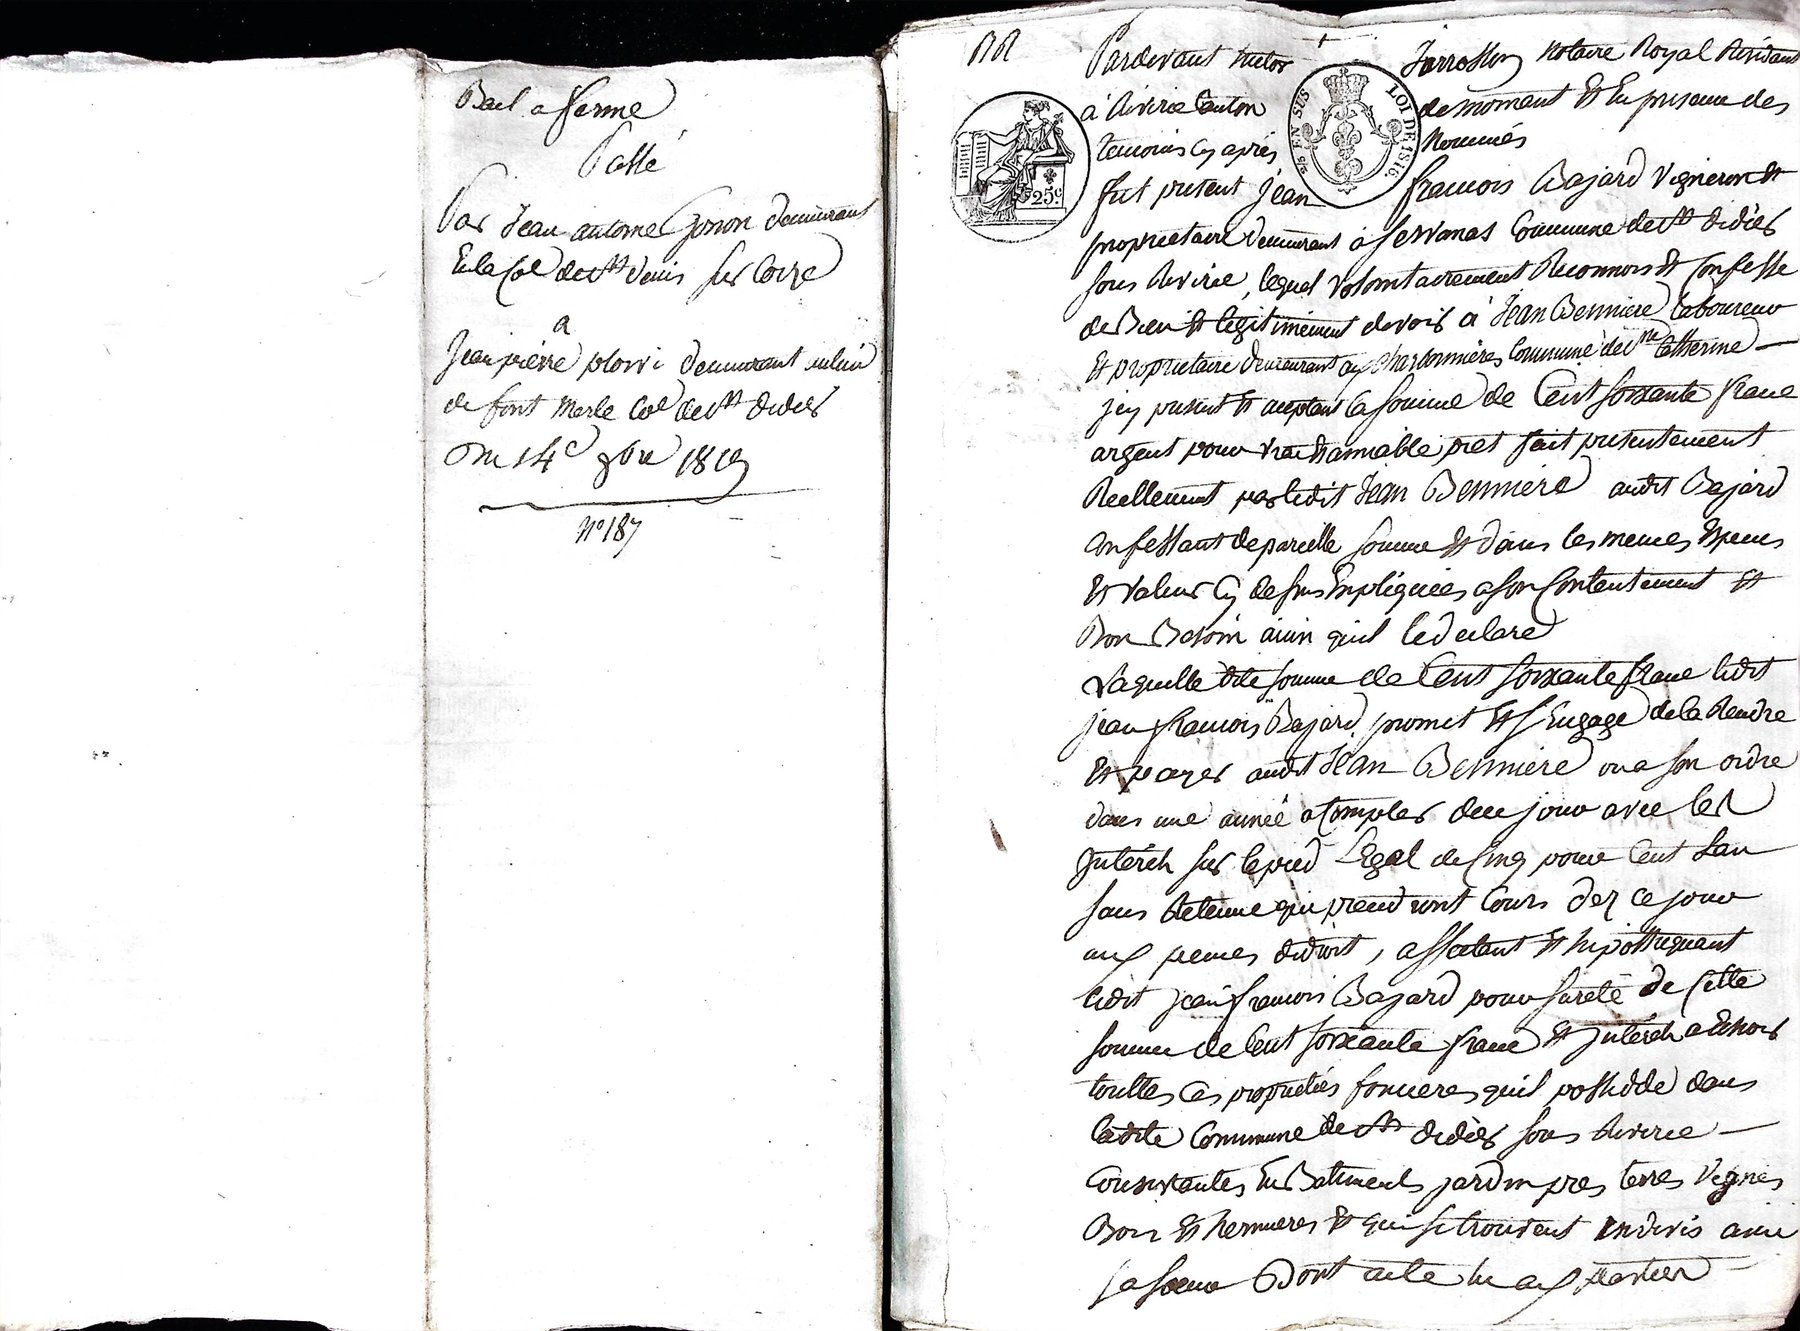 Bail a ferme
Passé
Par Jean antoine Gonon demeurant
En la Coe de st denis sur Coize
a
Jean pierre demeurant au lieu
de font merle Coe de st didier
Du 14e 9bre 1819
N° 187
Pardevant Jarrosson Notaire Royal Résidant
à Riverie Canton de mornant Et En presence des
temoins Cy après Nommés
EN SUS
LOI DE 1816
25c
fut présent Jean francois Bajard Vigneron Et
propriétaire demeurant à servanas Commune de st didier
sous Riverie, lequel volontairement Reconnois Et Confesse
de Bien Et légitimement devoir à Jean Bennière laboureur
Et propriétaire demeurant aux charbonnières Commune de ste Catherine
jcy présent Et acceptant la somme de Cent soixante franc
argent pour vrai Et amiable pret fait présentement
Reellement par ledit Jean Bennière audit Bajard
Confessant de pareille somme Et dans les memes Especes
Et valeur Cy dessus Expliquées a son Contentement Et
Bon Besoin ainsi quil le déclare
Laquelle dite somme de Cent soixante franc ledit
jean francois Bajard promet Et s'Engage de la Rendre
Et payer audit Jean Bennière ou a son ordre
dans une année a Compter de ce jour avec les
Intérêts sur le pied Légal de Cinq pour Cent L'an
sans Retenue qui prendront Cours dez ce jour
aux peines de droit, affectant Et hipotequant
ledit jean francois Bajard pour sureté de cette
somme de Cent soixante franc Et Intérêts a Echoir
touttes ces propriétés foncieres quil possede dans
ladite Commune de st didier sous Riverie
Consistantes En Batiments jardin pres terres Vignes
Bois Et hermieres Et qui se trouvent indivis avec
sa soeur Dont acte lu aux parties